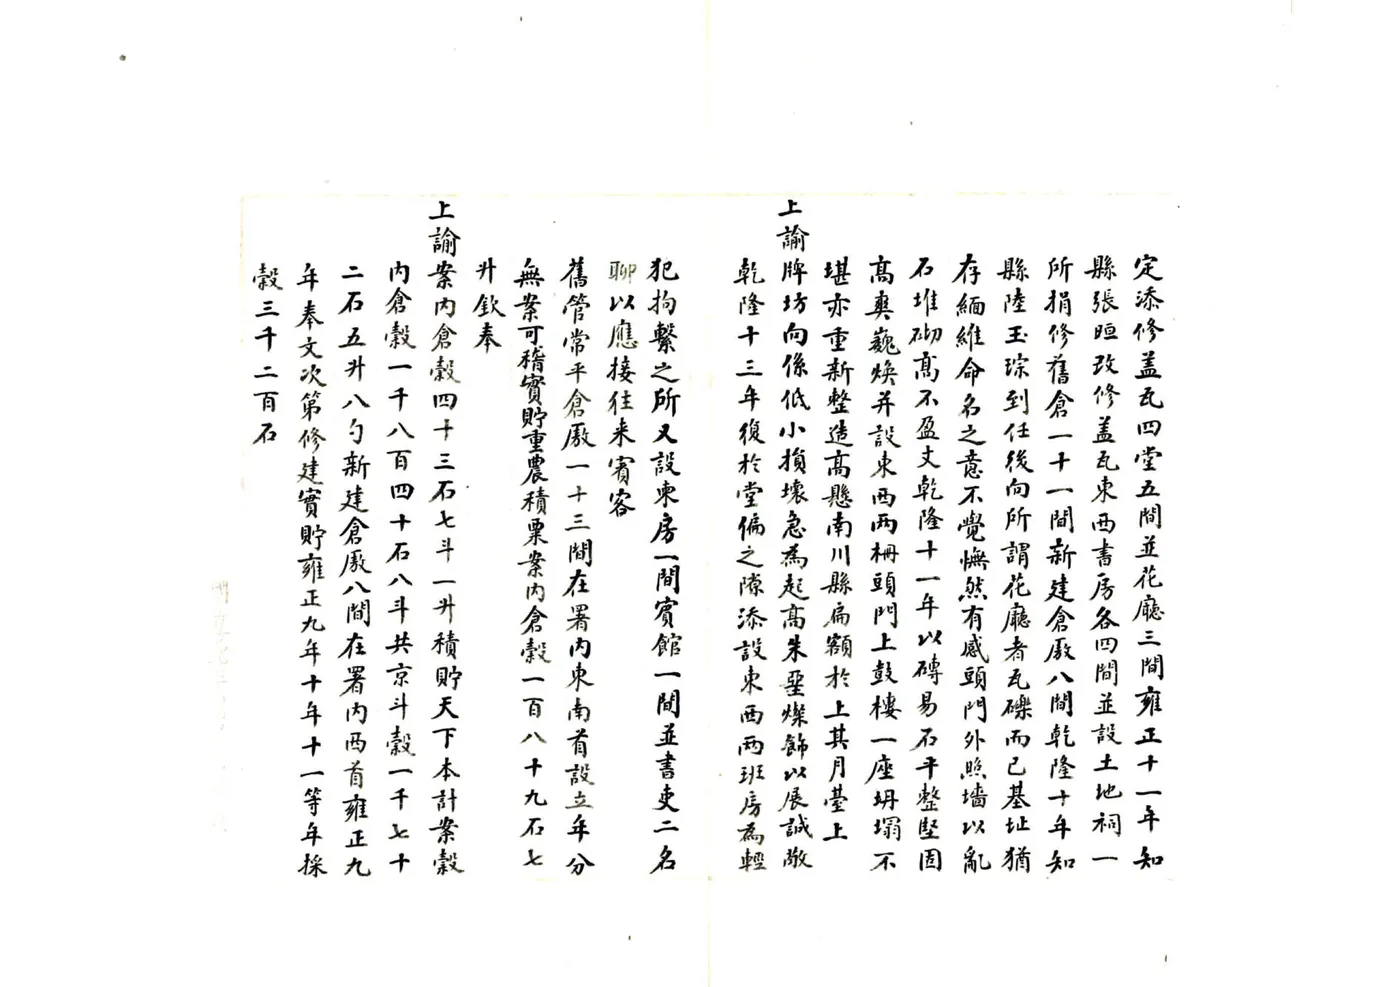 定添修盖瓦四堂五間並花廳三間雍正十一年知
縣張晅改修盖瓦東西書房各四間並設土地祠一
所捐修舊倉一十一間新建倉厫八間乾隆十年知
縣陸玉琮到任後向所謂花廳者瓦礫而已基址猶
存緬維命名之意不覺憮然有感頭門外照墙以亂
石堆砌高不盈丈乾隆十一年以磚易石平整堅固
高爽巍煥并設東西兩柵頭門上鼓樓一座坍塌不
堪亦重新整造高懸南川縣扁額於上其月臺上
上諭牌坊向係低小損壞急為起高朱堊燦飾以展誠敬
乾隆十三年復於堂偏之隙添設東西兩班房為輕
犯拘繫之所又設東房一間賓館一間並書吏二名
聊以應接往來賓客
舊管常平倉厫一十三間在署内東南首設立年分
無案可稽實貯重農積粟案内倉糓一百八十九石七
升欽奉
上諭案内倉糓四十三石七斗一升積貯天下本計案糓
内倉糓一千八百四十石八斗共京斗糓一千七十
二石五升八勺新建倉厫八間在署内西首雍正九
年奉文次第修建實貯雍正九年十年十一等年採
糓三千二百石